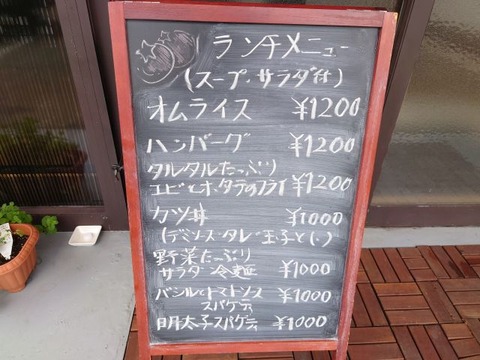 ランチメニュー
(スープ、サラダ付)
オムライス ¥1200
ハンバーグ ¥1200
タルタルたっぷり
エビとホタテのフライ ¥1200
カツ丼 ¥1000
(デミソース・タレ・玉子とじ)
野菜たっぷり
サラダ冷麺 ¥1000
バジルとトマトソース
スパゲティ ¥1000
明太子スパゲティ ¥1000